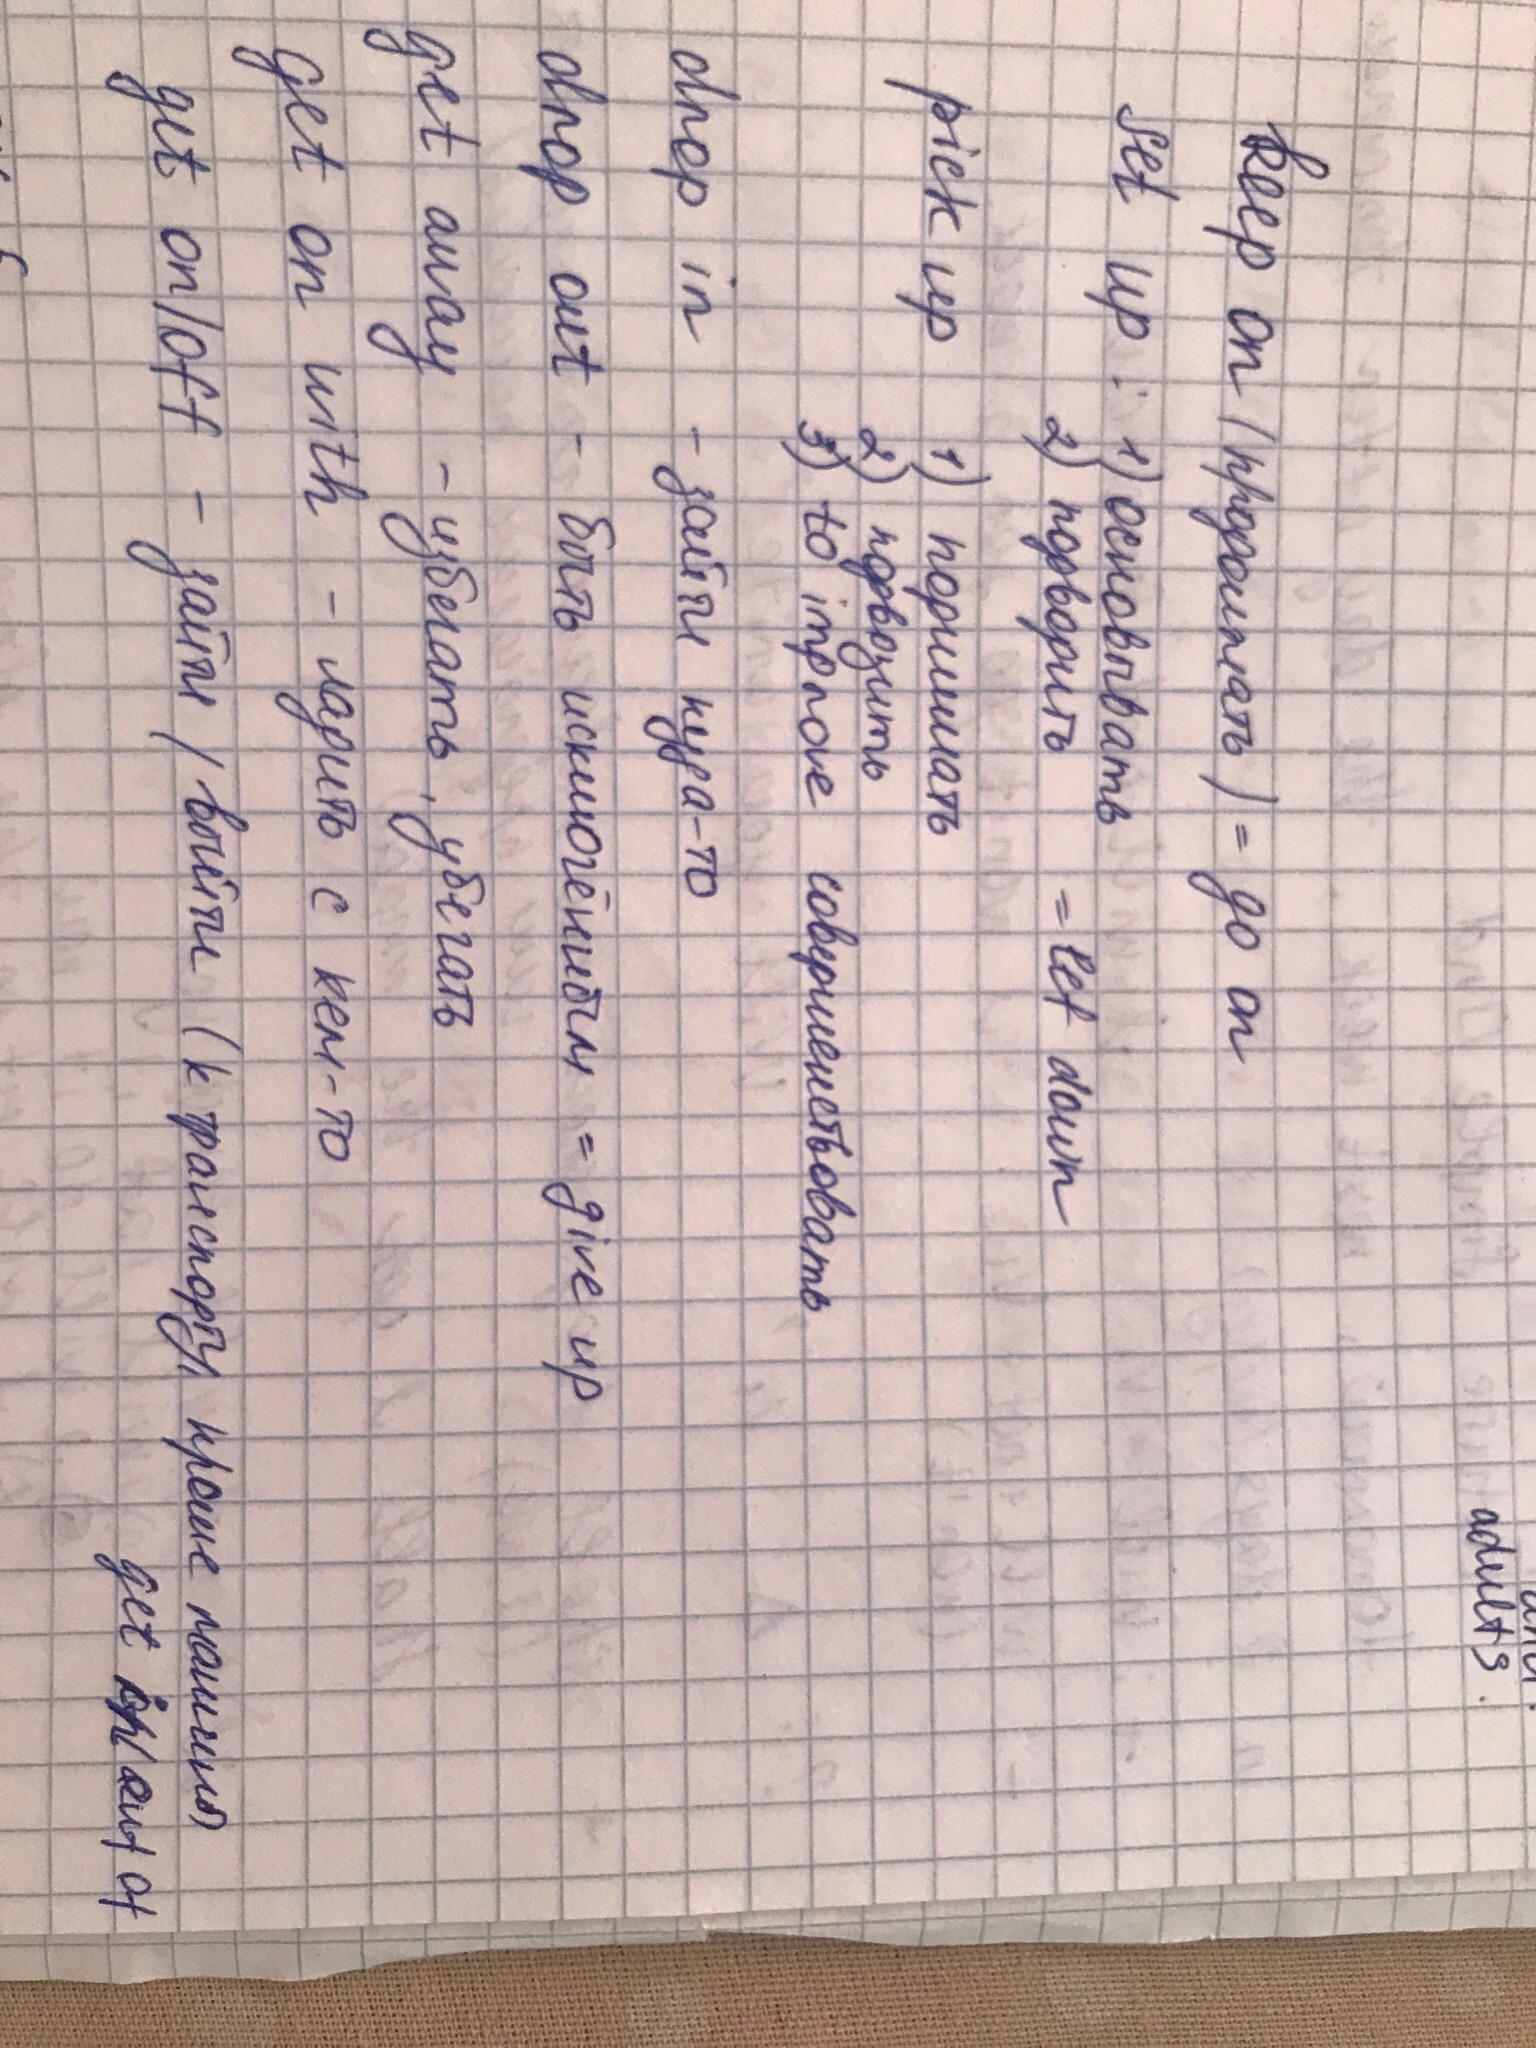 adults.
keep on (продолжать) = go on
set up : 1) основывать
2) подводить = let down
pick up 1) поднимать
2) подвозить
3) to improve совершенствовать
drop in - зайти куда-то
drop out - быть исключённым = give up
get away - избегать, убегать
get on with - ладить с кем-то
get on/off - зайти / выйти (к транспорту, кроме машины)
get in/out of